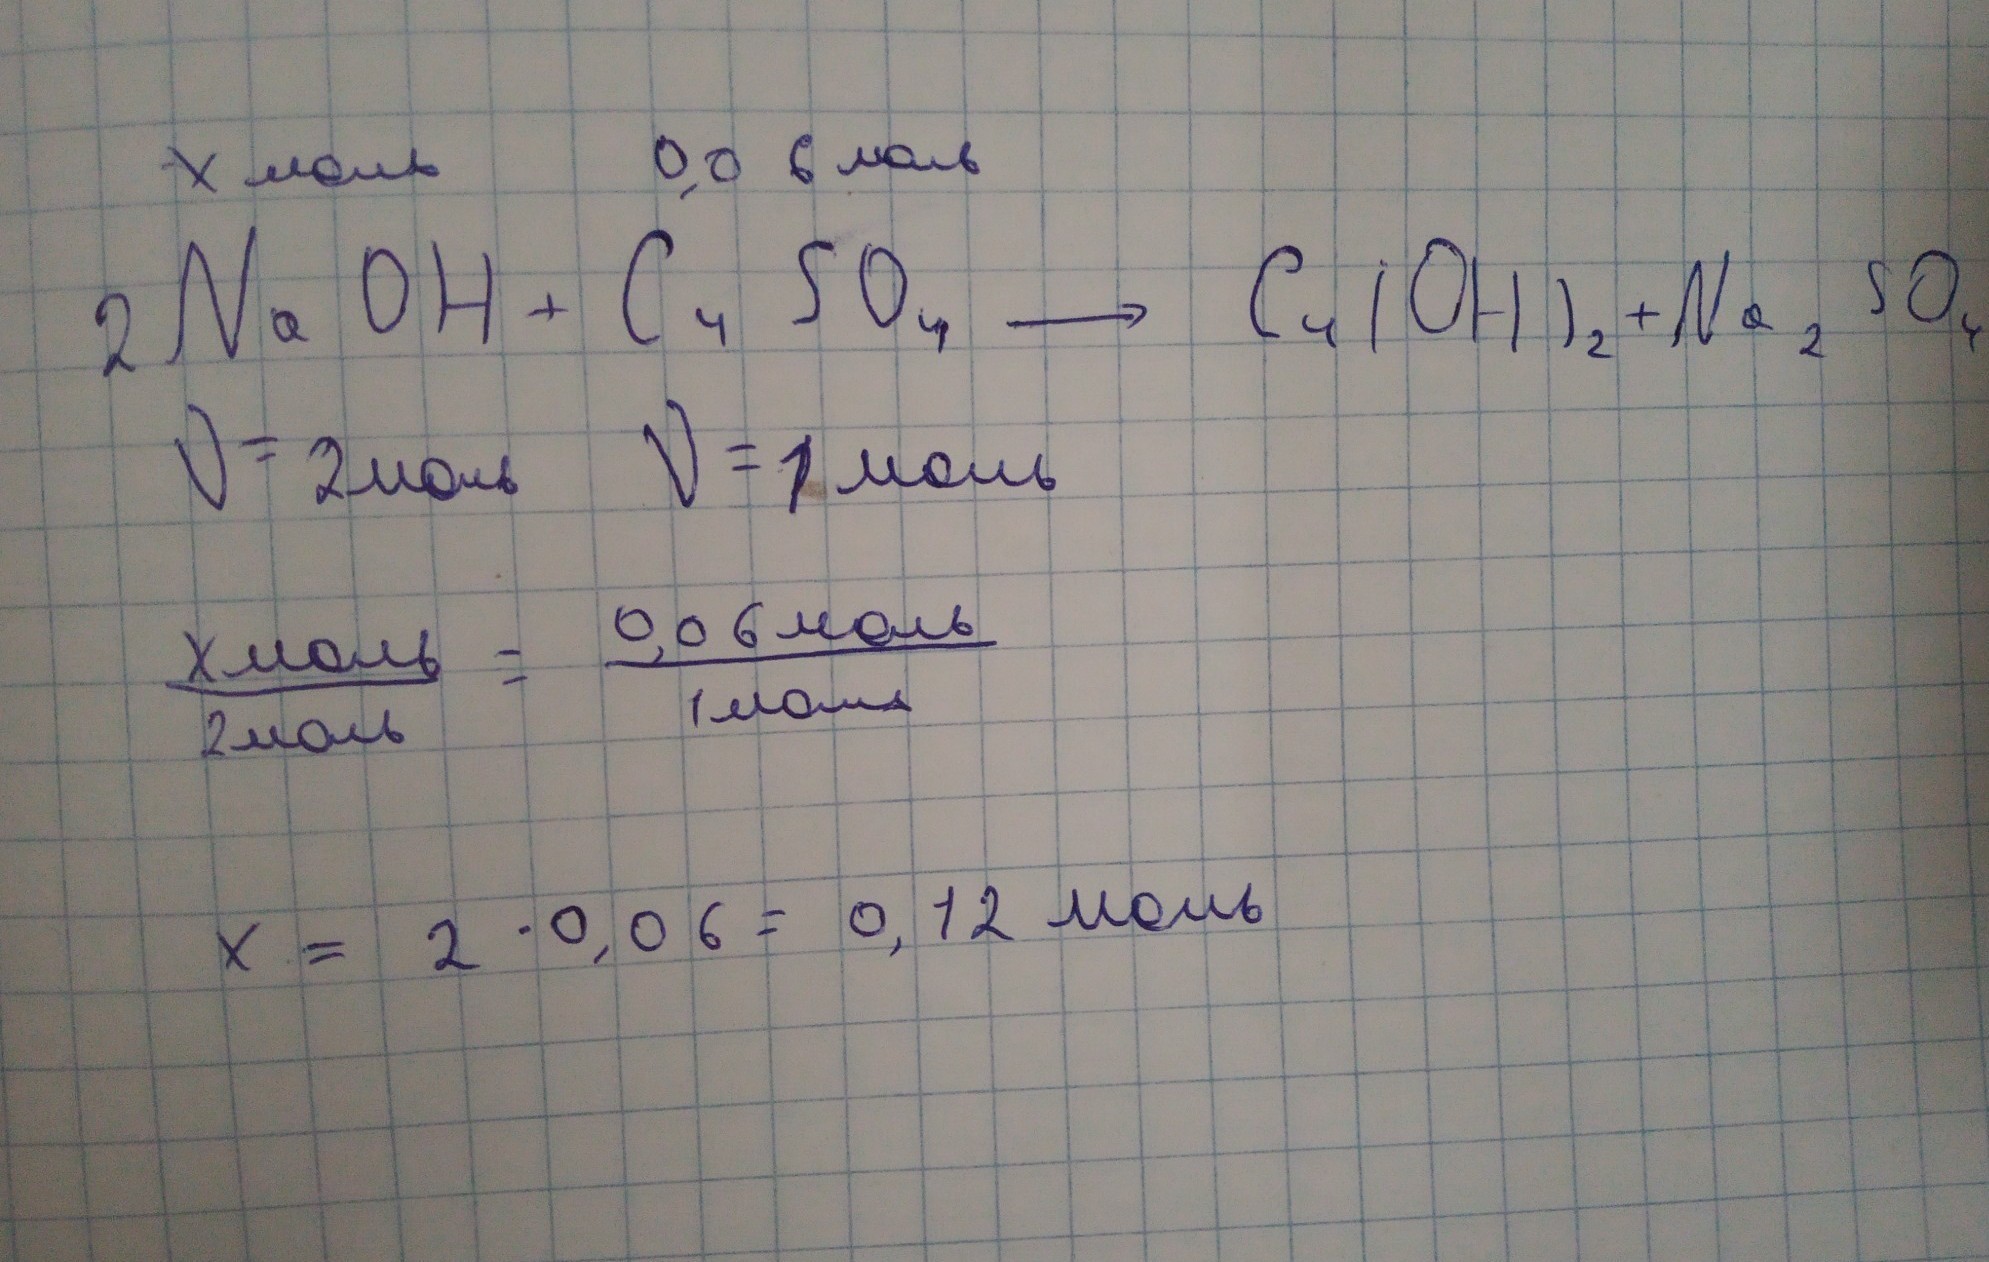 x моль 0,06 моль
2NaOH + CuSO₄ → Cu(OH)₂ + Na₂SO₄
V = 2 моль V = 1 моль
x моль / 2 моль = 0,06 моль / 1 моль
x = 2 · 0,06 = 0,12 моль